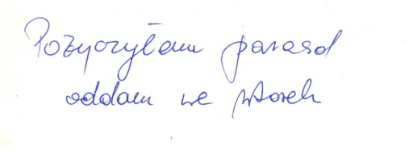 Pożyczyłam parasol
oddam we wtorek